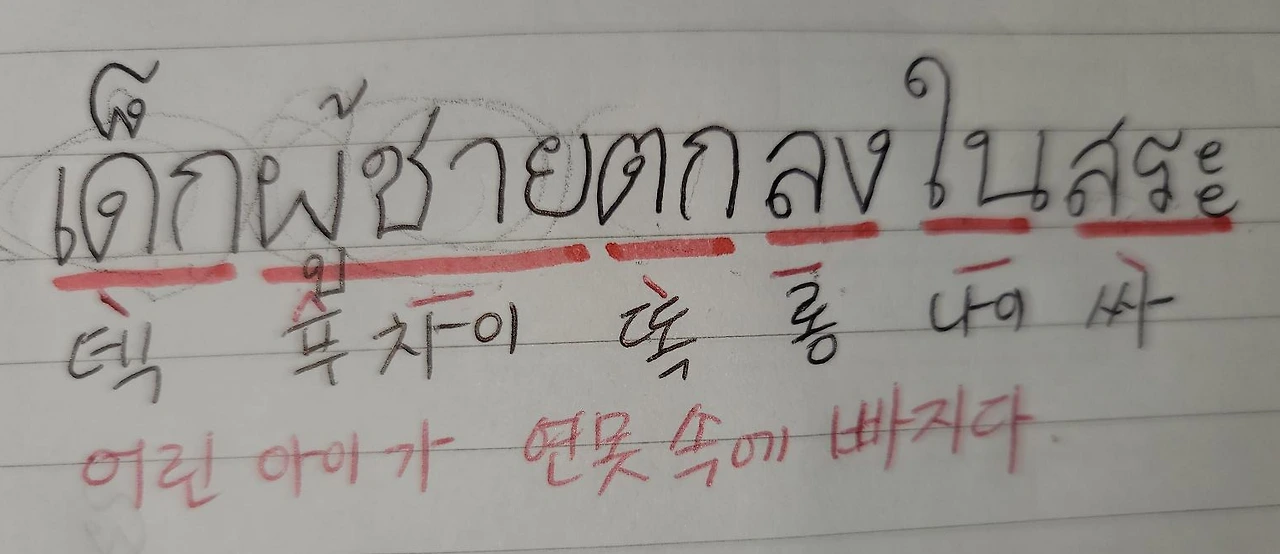 เด็กผู้ชายตกลงในสระ
덱 푸 차이 똑 롱 나이 싸
어린 아이가 연못 속에 빠지다.